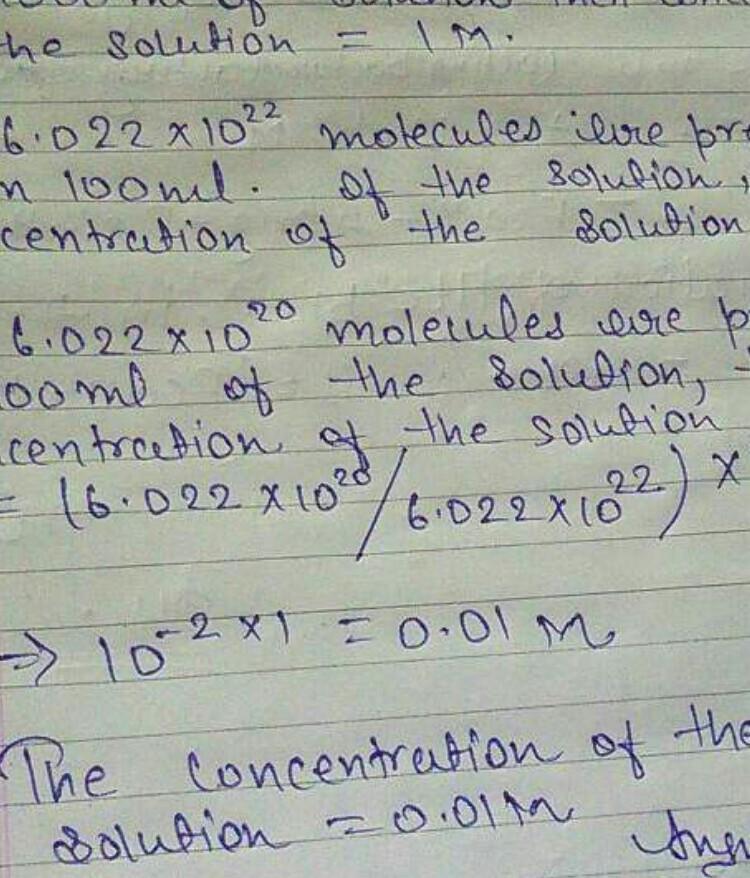 he solution = 1 M.
6.022 × 10²² molecules are pre
n 100 ml. of the solution,
centration of the solution
6.022 × 10²⁰ molecules are p
00 ml of the solution,
centration of the solution
= (6.022 × 10²⁰ / 6.022 × 10²²) ×
⇒ 10⁻² × 1 = 0.01 M
The concentration of the
solution = 0.01 M Ans